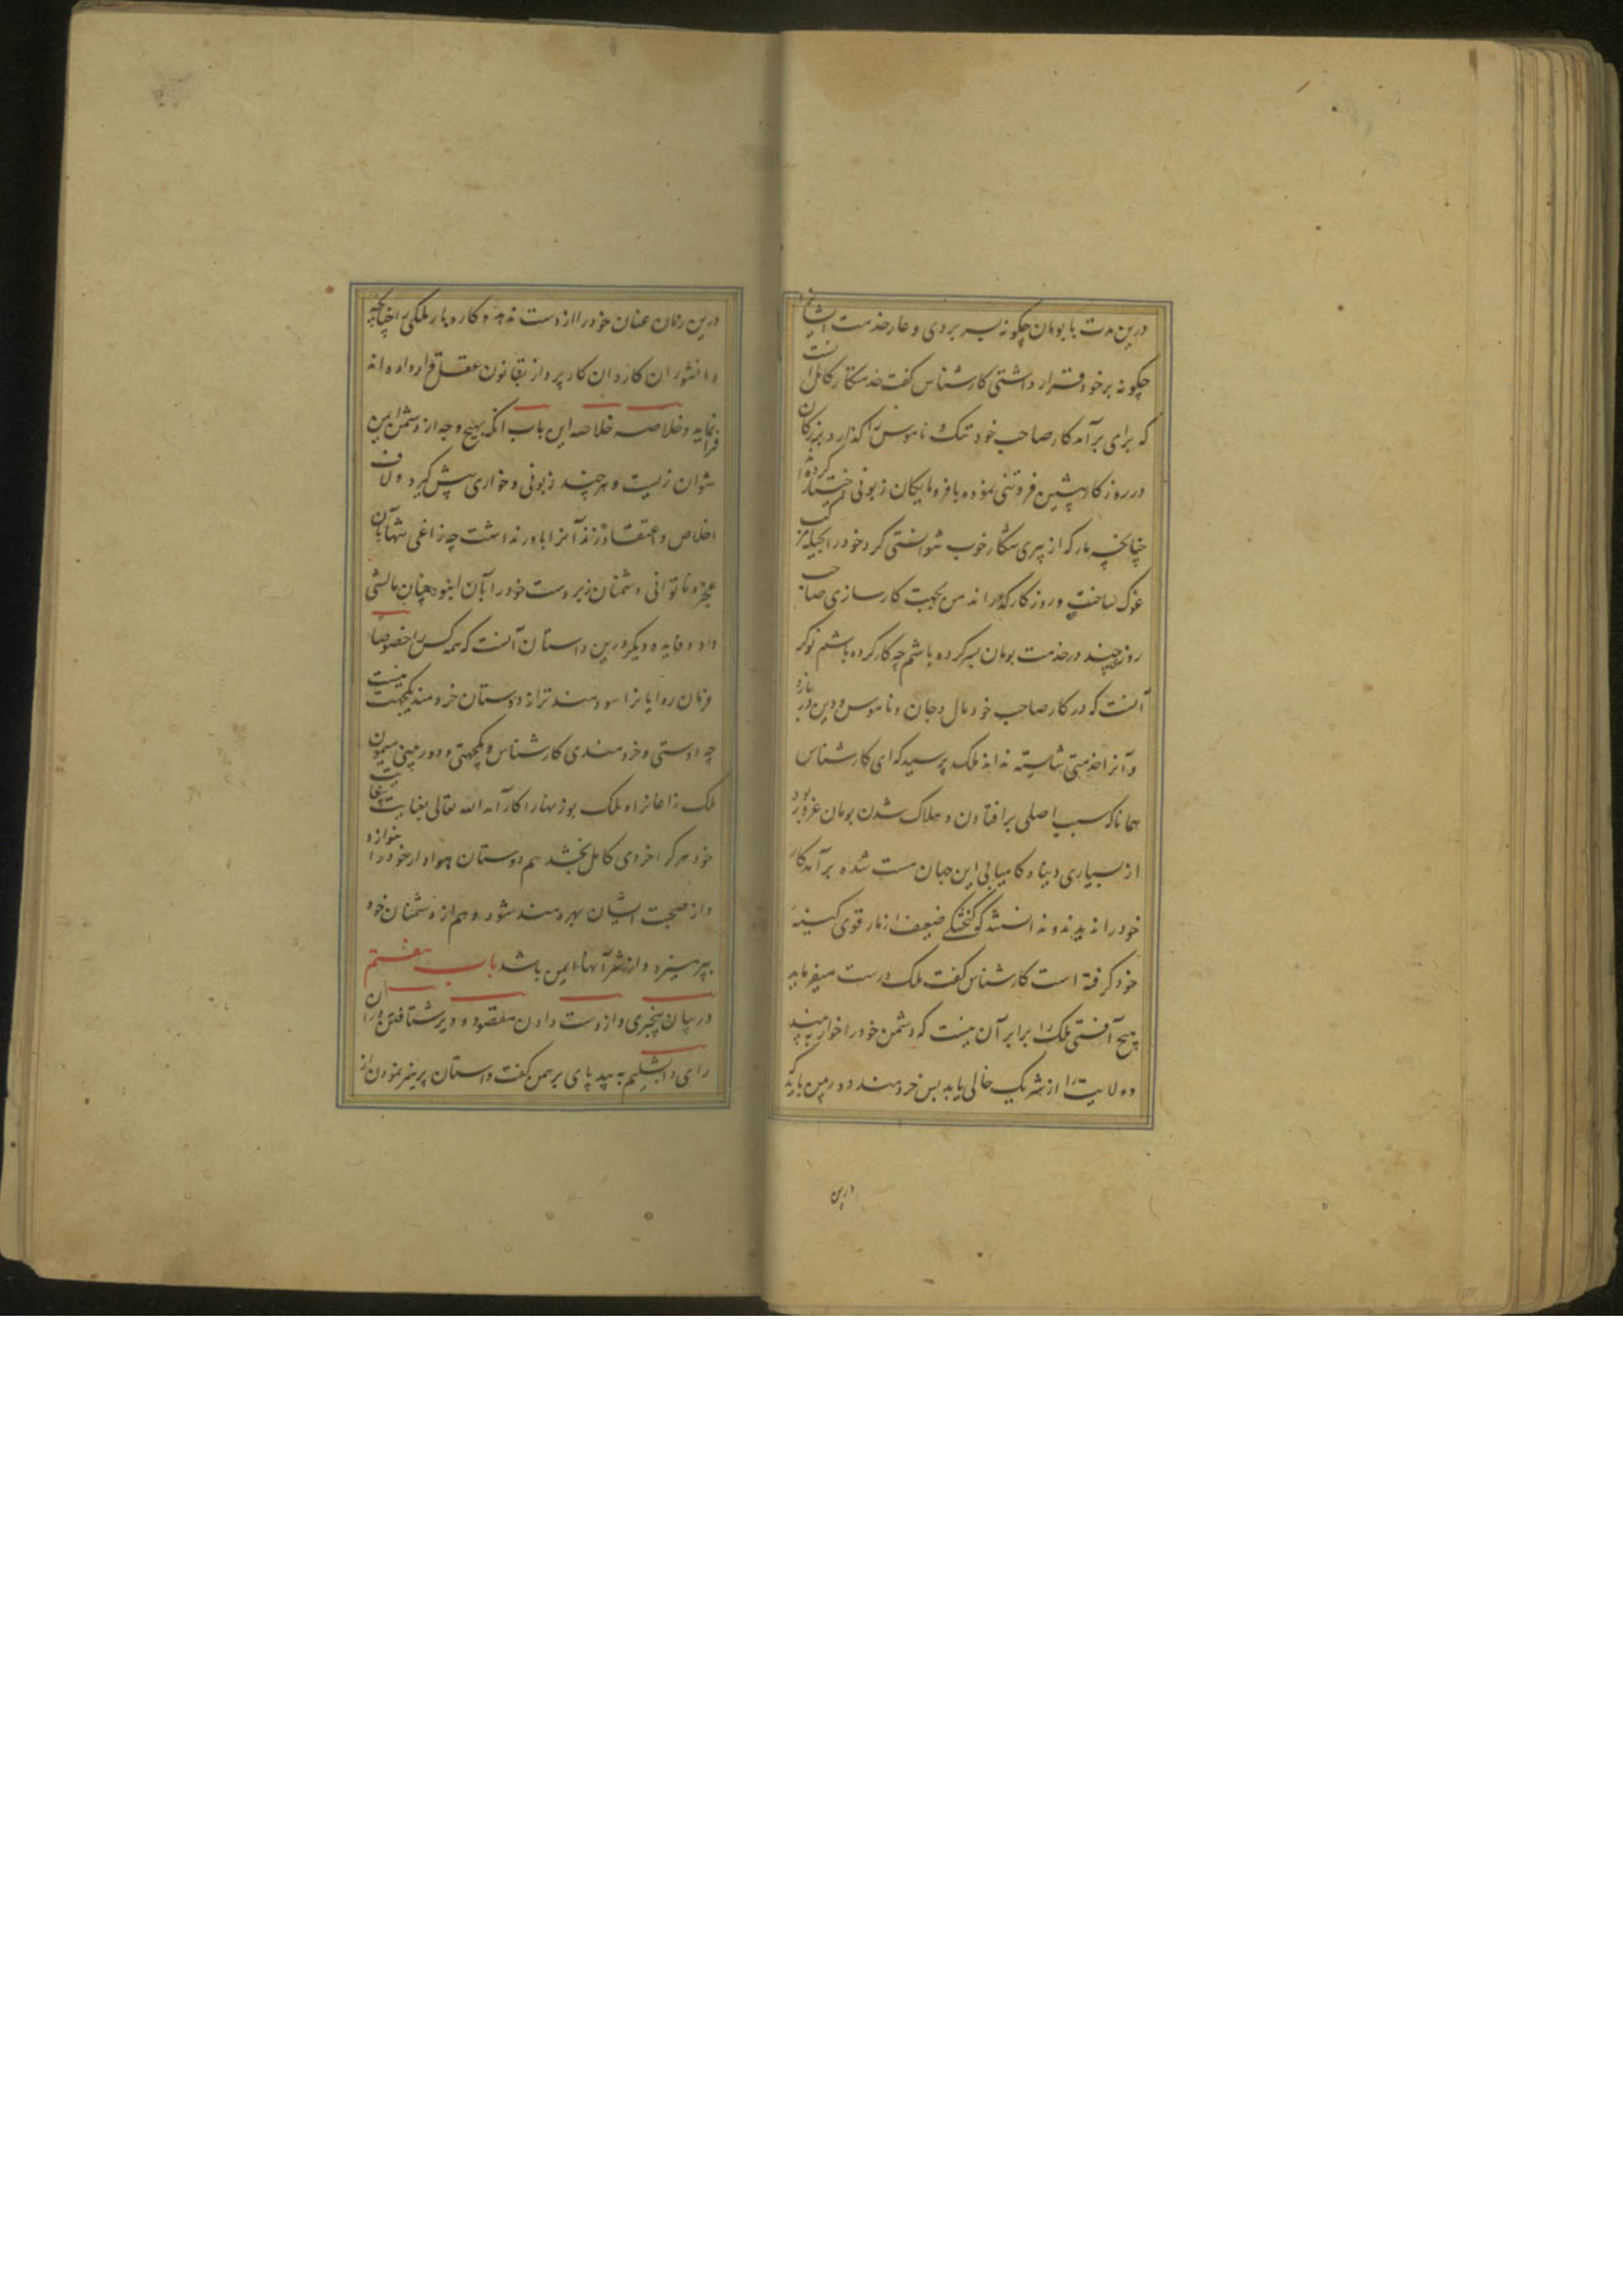 درین مدت با بومان چگونه بسر بردی و عار خدمت ایشان را
چگونه بر خود قرار داشتی کارشناس گفت خدمتکار کامل آنست
که برای برآمد کار صاحب خود ننگ و ناموس را گذارد و بزرگان
در روزگار پیشین فروتنی نموده با فرومایگان زبونی اختیار کرده‌اند
چنانچه مار که از پیری شکار خوب نتوانستی کرد خود را بحیله مرکب
غوک ساخت و روزگار گذراند من بجهت کارسازی صاحب
روزی چند در خدمت بومان بسر کرده باشم چه کار کرده باشم نوکر
آنست که در کار صاحب خود مال و جان و ناموس و دین در بازد
و آنرا خدمتی شایسته نداند ملک پرسید که ای کارشناس
همانا که سبب اصلی برافتادن و هلاک شدن بومان غرور بود
از بسیاری دنیا و کامیابی این جهان مست شده برآمد کار
خود را ندیدند و ندانستند که گنجشکی ضعیف از مار قوی کینه
خود گرفته است کارشناس گفت ملک درست میفرماید
هیچ آفتی ملک را برابر آن نیست که دشمن خود را خوار به بیند
و ولایت را از شریک خالی یابد بس خردمند دوربین باید که
درین
درین زمان عنان خود را از دست ندهد و کار و بار ملکی را چنانچه
دانشوران کاردان کارپرداز بقانون عقل قرار داده‌اند
فرا نماید و خلاصه خلاصه این باب آنکه بهیچ وجه از دشمن ایمن
نتوان زیست و هرچند زبونی و خواری پیش گیرد و لاف
اخلاص و اعتقاد زند آنرا باور نداشت چه زاغی تنها بآن
عجز و ناتوانی دشمنان زبردست خود را بآن انبوه چنان مالشی
داد و فایده دیگر درین داستان آنست که همه کس را خصوصا
فرمان روایان را سودمندتر از دوستان خردمند یکجهت نیست
چه دوستی و خردمندی کارشناس و یکجهتی و دوربینی میمون
ملک زاغان را و ملک بوزنها را کار آمد الله تعالی بعنایت بیغایت
خود هر که را خردی کامل بخشد هم دوستان هوادار خود را بنوازد
و از صحبت ایشان بهره‌مند شود و هم از دشمنان خود
بپرهیزد و از شر آنها ایمن باشد باب هفتم
در بیان بیخبری و از دست دادن مقصود و دیر شتافتن در آن
رای دابشلیم به بید پای برهمن گفت داستان پرهیز نمودن از